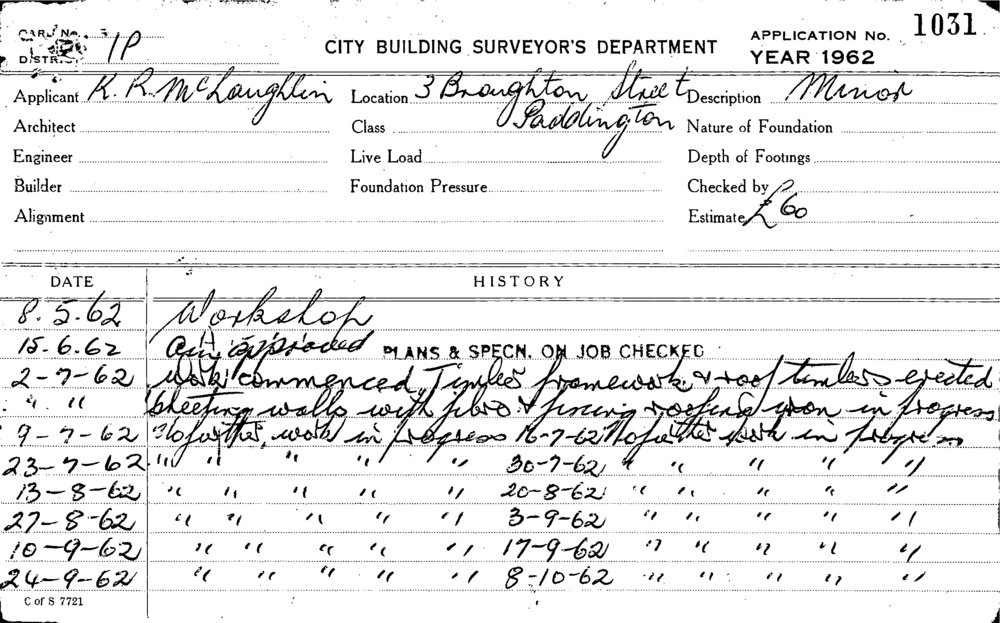 CARD No. 1P
DISTRICT
CITY BUILDING SURVEYOR'S DEPARTMENT
APPLICATION No. 1031
YEAR 1962
Applicant K. R. McLaughlin Location 3 Broughton Street Paddington Description Minor
Architect Class Nature of Foundation
Engineer Live Load Depth of Footings
Builder Foundation Pressure Checked by
Alignment Estimate £60
DATE HISTORY
8.5.62 Workshop
15.6.62 approved PLANS & SPECN. ON JOB CHECKED
2-7-62 Work commenced, Timber framework & roof timbers erected
" " Sheeting walls with fibro & fixing roofing iron in progress
9-7-62 No further work in progress 16-7-62 No further work in progress
23-7-62 " " " " " 30-7-62 " " " " "
13-8-62 " " " " " 20-8-62 " " " " "
27-8-62 " " " " " 3-9-62 " " " " "
10-9-62 " " " " " 17-9-62 " " " " "
24-9-62 " " " " " 8-10-62 " " " " "
C of S 7721